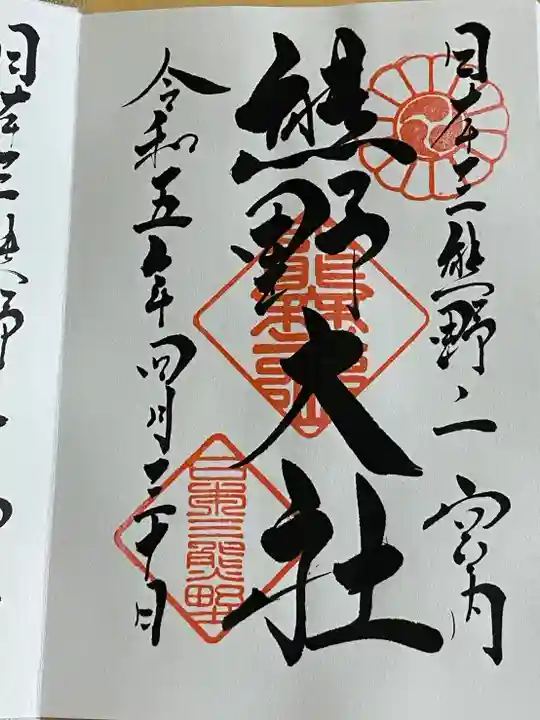 日本三熊野之一 宮内
熊野大社
令和五年四月二十日
日本三熊野